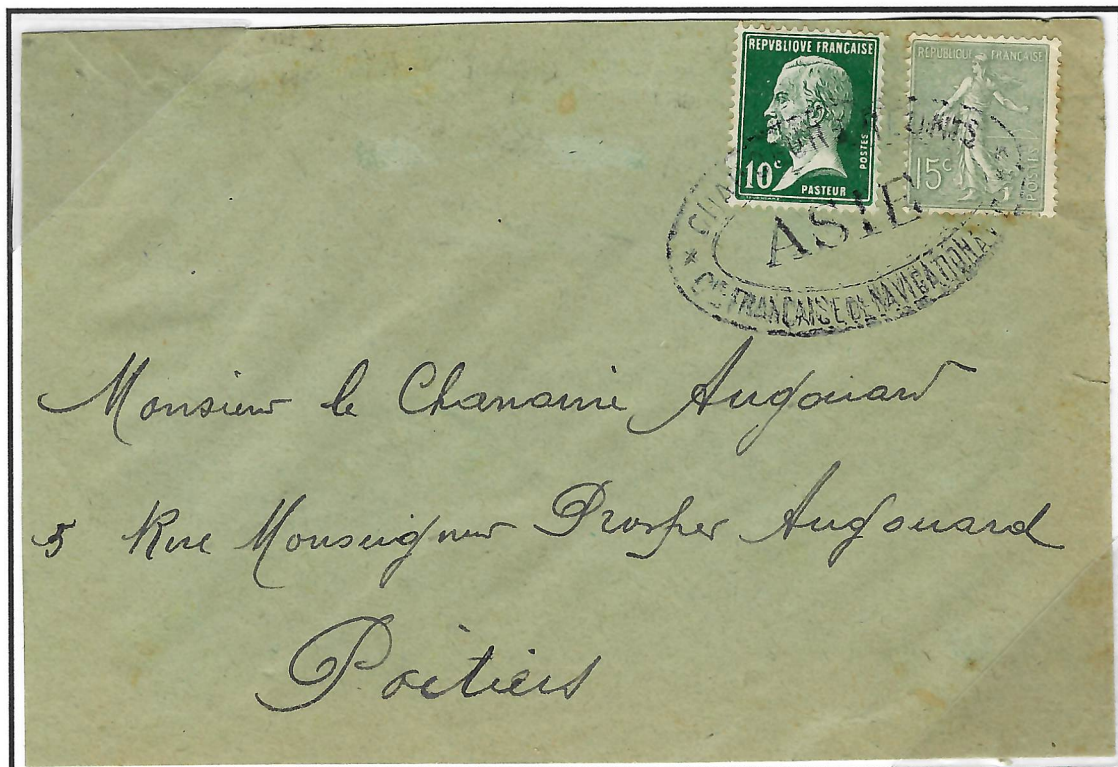 REPVBLIQUE FRANÇAISE
10c
POSTES
PASTEUR
REPUBLIQUE FRANÇAISE
15c
POSTES
RÉUNIS
ASIE
* Cie FRANÇAISE DE NAVIGATION A
Monsieur le Chanoine Augouard
5 Rue Monseigneur Prosper Augouard
Poitiers